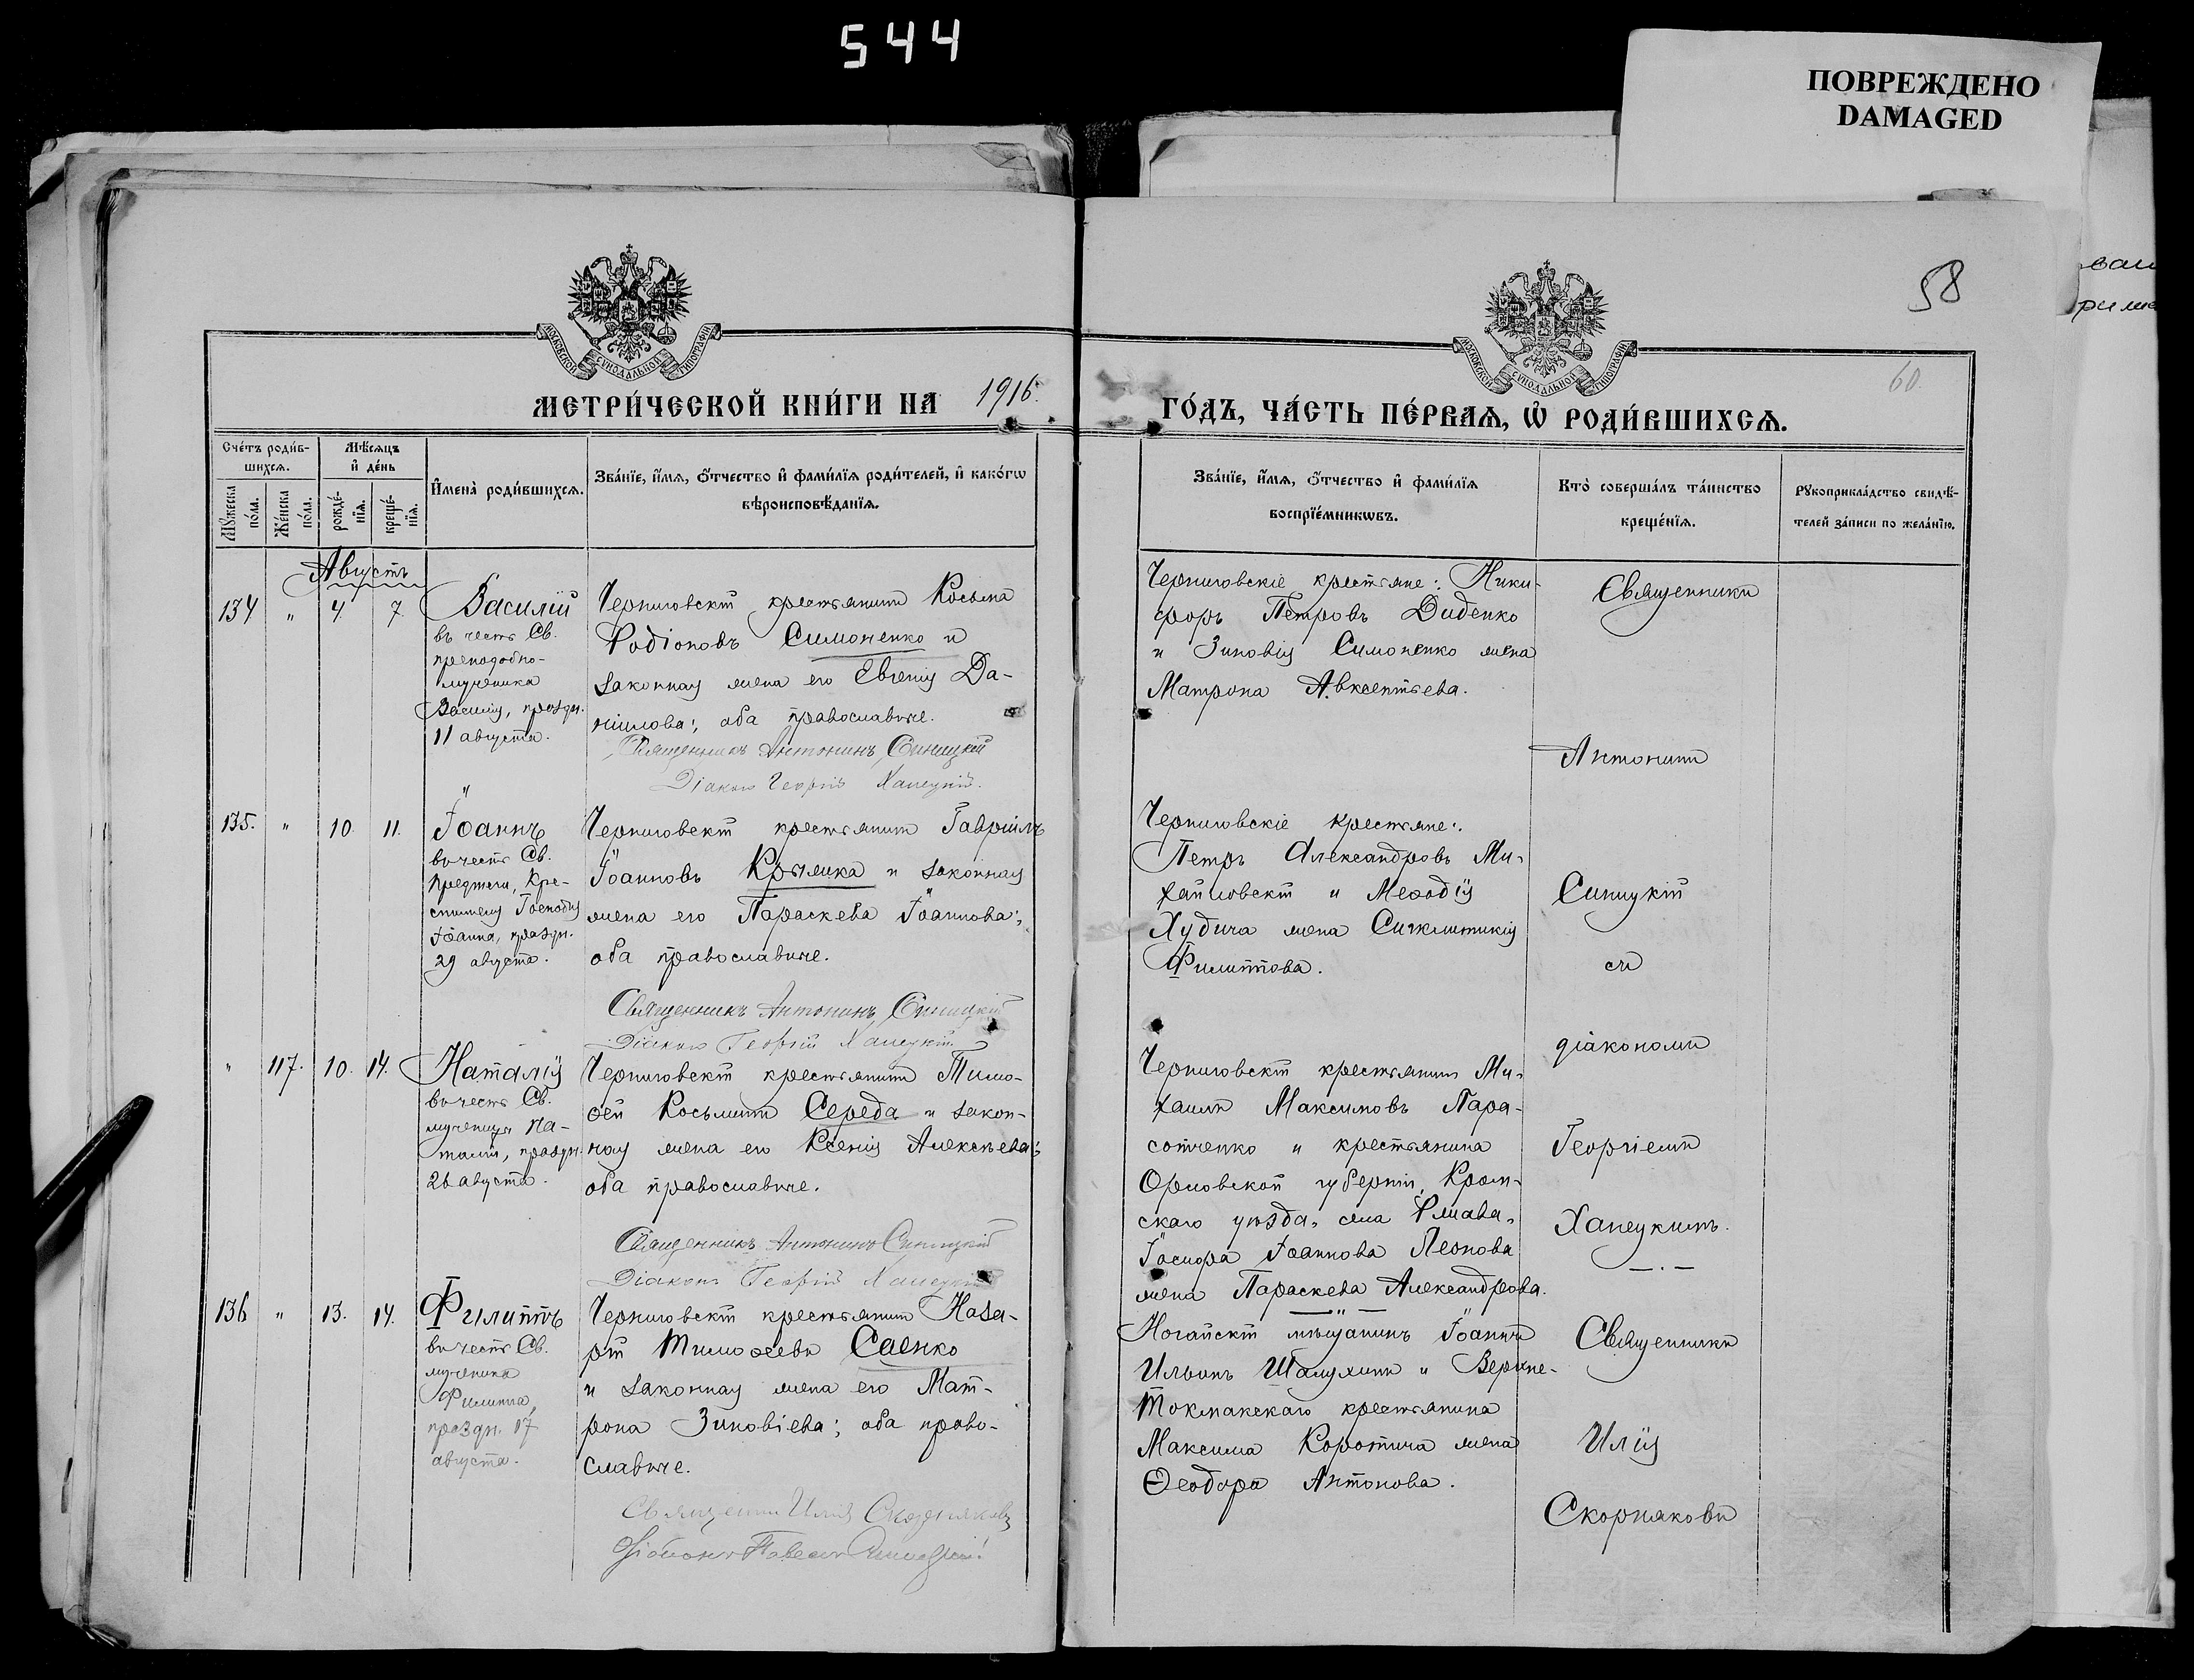 544
ПОВРЕЖДЕНО
DAMAGED
58
60.
МОСКОВСКОЙ СѴНОДАЛЬНОЙ ТИПОГРАФІИ
МОСКОВСКОЙ СѴНОДАЛЬНОЙ ТИПОГРАФІИ
МЕТРИ́ЧЕСКОЙ КНИ́ГИ НА 1916.
ГО́ДЪ, ЧА́СТЬ ПЕ́РВАѦ, Ѡ҆ РОДИ́ВШИХСѦ.
Сче́тъ роди́в-
шихсѧ.
Мꙋ́жеска по́ла.
Же́нска по́ла.
Мѣ́сѧцъ
и҆ де́нь
рожде́-
нїѧ.
креще́-
нїѧ.
И҆мена̀ роди́вшихсѧ.
Зва́нїе, и҆́мѧ, ѻ҆́тчество и҆ фами́лїѧ роди́телей, и҆ како́гѡ
вѣроисповѣ́данїѧ.
Зва́нїе, и҆́мѧ, ѻ҆́тчество и҆ фами́лїѧ
воспрїе́мникѡвъ.
Кто̀ соверша́лъ та́инство
креще́нїѧ.
Рꙋкоприкла́дство свидѣ́-
телей за́писи по жела́нїю.
Августъ
134 " 4. 7.
Василій
въ честь Св.
преподобно-
мученика
Василія, праздн.
11 августа.
Черниговскій крестьянинъ Косьма
Родіоновъ Симоненко и
законная жена его Евгенія Да-
ніилова; оба православные.
Священникъ Антонинъ Синицкій
Діаконъ Георгій Ханецкій.
Черниговскіе крестьяне: Ники-
форъ Петровъ Диденко
и Зиновія Симоненко жена
Матрона Авксентьева.
Священникъ
Антонинъ
135. " 10. 11.
Іоаннъ
въ честь Св.
Предтечи, Кре-
стителя Господня
Іоанна, праздн.
29 августа.
Черниговскій крестьянинъ Гавріилъ
Іоанновъ Крыжка и законная
жена его Параскева Іоаннова;
оба православные.
Священникъ Антонинъ Синицкій
Діаконъ Георгій Ханецкій
Черниговскіе крестьяне:
Петръ Александровъ Ми-
хайловскій и Меѳодія
Худича жена Синклитикія
Филиппова.
Синицкій
съ
діакономъ
" 117. 10. 14.
Наталія
въ честь Св.
мученицы На-
таліи, праздн.
26 августа.
Черниговскій крестьянинъ Тимо-
ѳей Косьминъ Середа и закон-
ная жена его Ксенія Алексѣева;
оба православные.
Священникъ Антонинъ Синицкій
Діаконъ Георгій Ханецкій
Черниговскій крестьянинъ Ми-
хаилъ Максимовъ Пара-
сотченко и крестьянина
Орловской губерніи, Кром-
скаго уѣзда, села
Іоаннова Леонова
жена Параскева Александрова.
Георгіемъ
Ханецкимъ.
136 " 13. 14.
Филиппъ
въ честь Св.
мученика
Филиппа,
праздн. 17
августа.
Черниговскій крестьянинъ Наза-
рій Тимоѳеевъ Саенко
и законная жена его Мат-
рона Зиновіева; оба право-
славные.
Священникъ Илія Скорняковъ
Ногайскій мѣщанинъ Іоаннъ
Ильинъ Шалухинъ и Верхне-
Токмакскаго крестьянина
Максима Коротича жена
Ѳеодора Антонова.
Священникъ
Илія
Скорняковъ